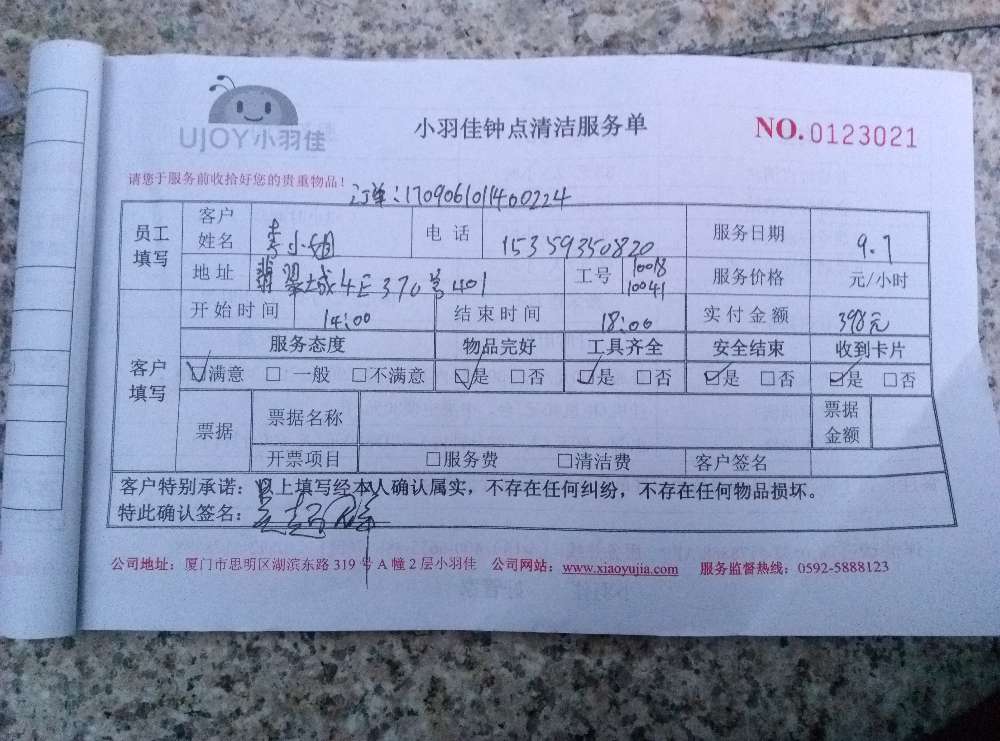 UJOY小羽佳
小羽佳钟点清洁服务单
NO.0123021
请您于服务前收拾好您的贵重物品！
订单：170906101400224
员工填写 客户姓名 李小姐 电话 15359350820 服务日期 9.7
地址 翡翠城4E370号401 工号 10018 10041 服务价格 元/小时
客户填写 开始时间 14:00 结束时间 18:00 实付金额 398元
服务态度 物品完好 工具齐全 安全结束 收到卡片
☑满意 □一般 □不满意 ☑是 □否 ☑是 □否 ☑是 □否 ☑是 □否
票据 票据名称 票据金额
开票项目 □服务费 □清洁费 客户签名
客户特别承诺：以上填写经本人确认属实，不存在任何纠纷，不存在任何物品损坏。
特此确认签名：
公司地址：厦门市思明区湖滨东路319号A幢2层小羽佳 公司网站：www.xiaoyujia.com 服务监督热线：0592-5888123